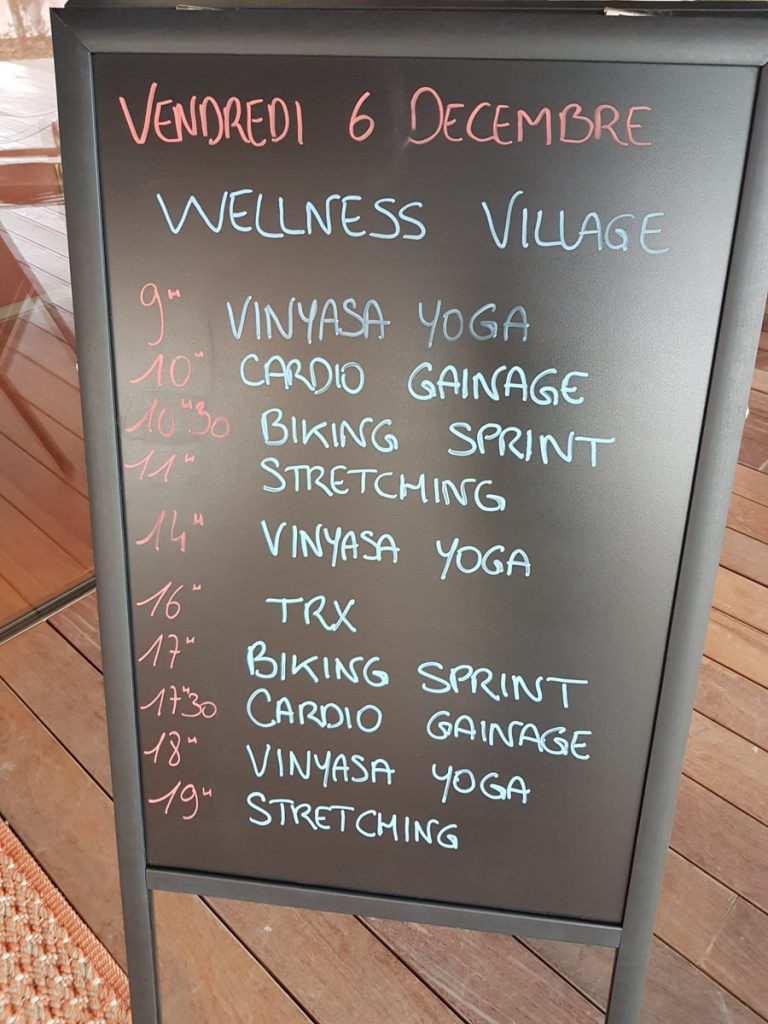 VENDREDI 6 DECEMBRE
WELLNESS VILLAGE
9H VINYASA YOGA
10H CARDIO GAINAGE
10H30 BIKING SPRINT
11H STRETCHING
14H VINYASA YOGA
16H TRX
17H BIKING SPRINT
17H30 CARDIO GAINAGE
18H VINYASA YOGA
19H STRETCHING